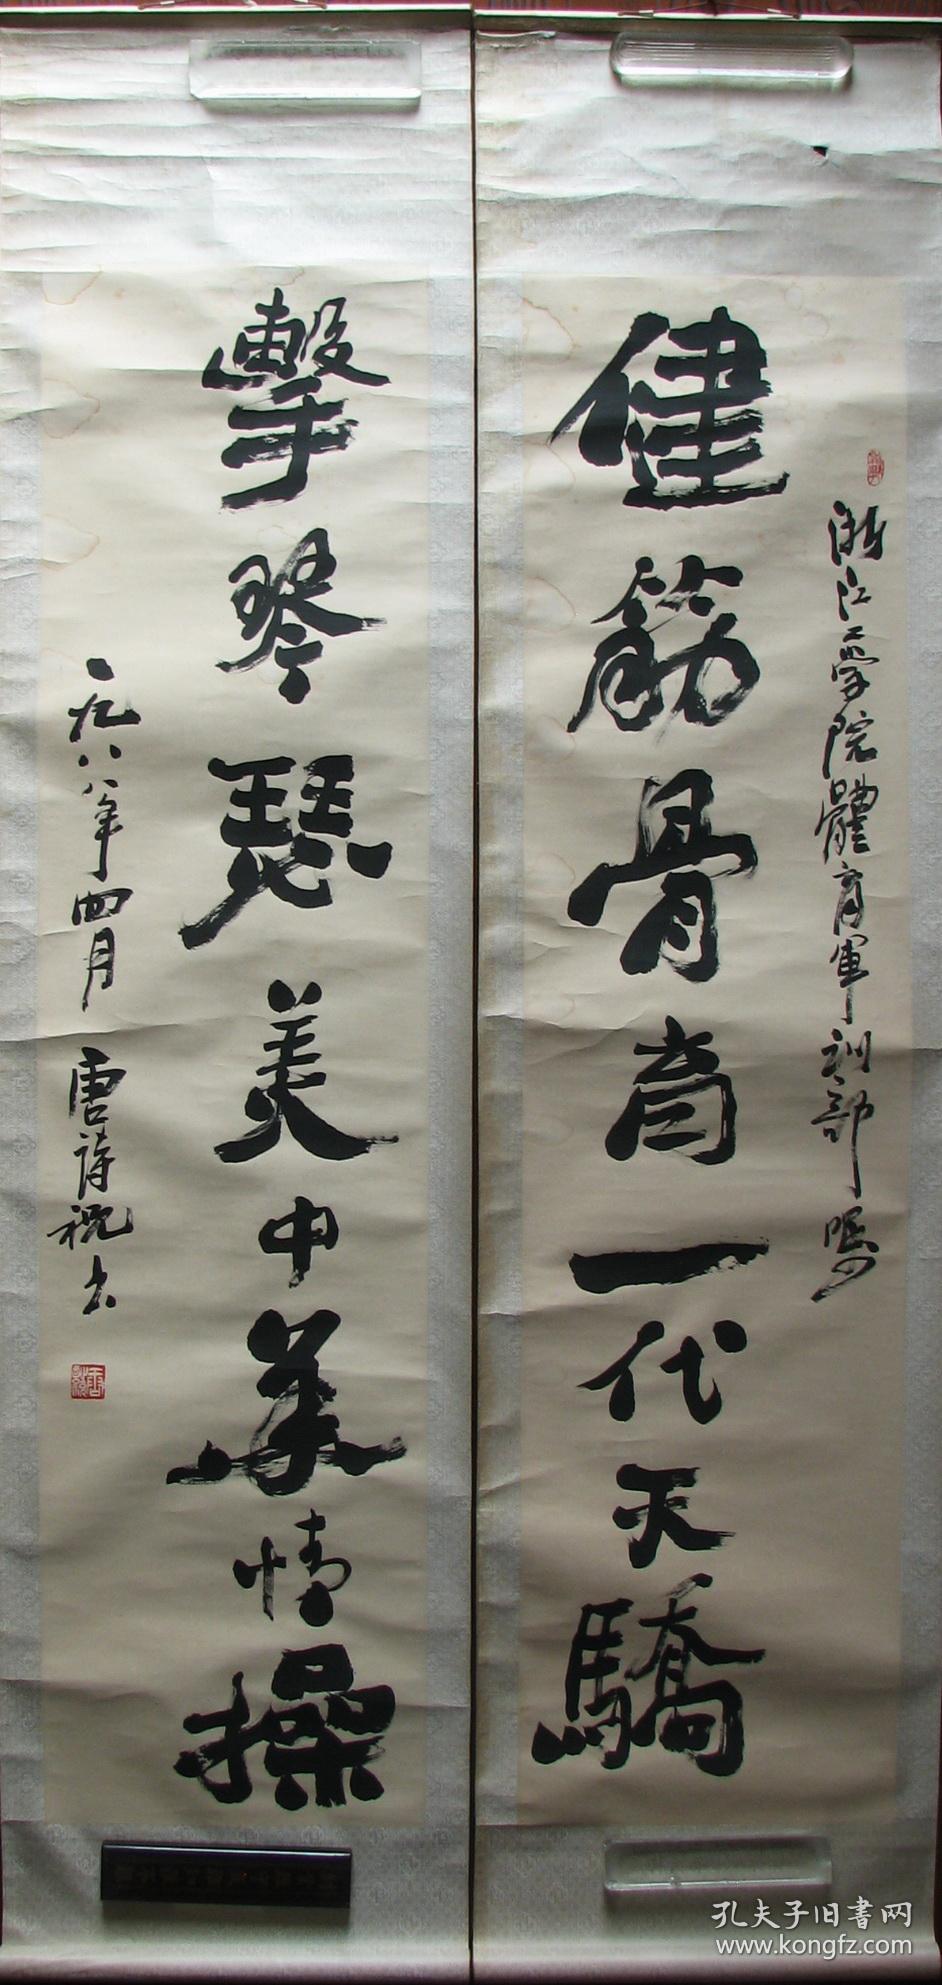 浙江工学院體育軍训部嘱书
健筋骨育一代天驕
擊琴瑟美中華情操
一九八八年四月 唐詩祝书
孔夫子旧书网
www.kongfz.com